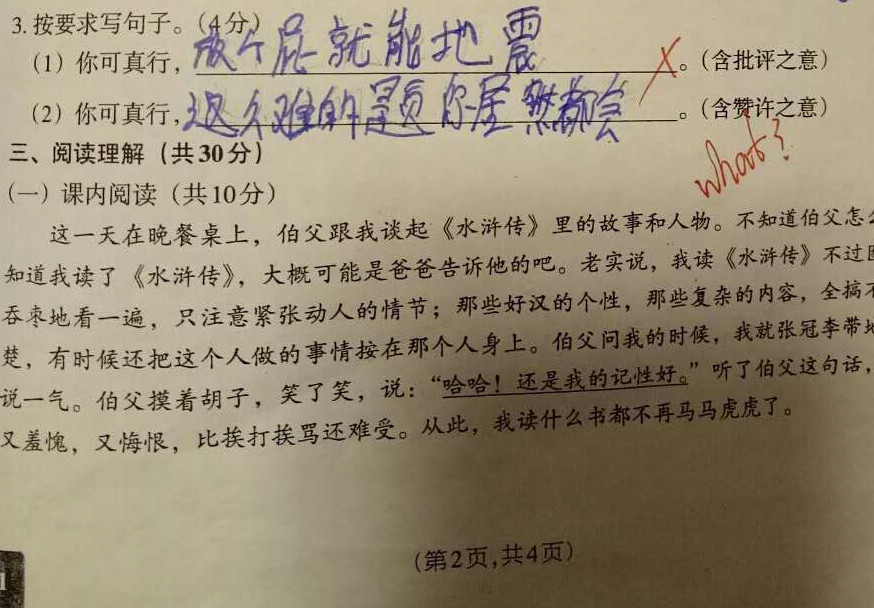 3.按要求写句子。(4分)
(1)你可真行,放个屁就能地震。(含批评之意)
(2)你可真行,这么难的题你居然都会。(含赞许之意)
what?
三、阅读理解(共30分)
(一)课内阅读(共10分)
这一天在晚餐桌上,伯父跟我谈起《水浒传》里的故事和人物。不知道伯父怎么
知道我读了《水浒传》,大概可能是爸爸告诉他的吧。老实说,我读《水浒传》不过囫
吞枣地看一遍,只注意紧张动人的情节;那些好汉的个性,那些复杂的内容,全搞不
楚,有时候还把这个人做的事情按在那个人身上。伯父问我的时候,我就张冠李带地
说一气。伯父摸着胡子,笑了笑,说:“哈哈!还是我的记性好。”听了伯父这句话,
又羞愧,又悔恨,比挨打挨骂还难受。从此,我读什么书都不再马马虎虎了。
(第2页,共4页)
1